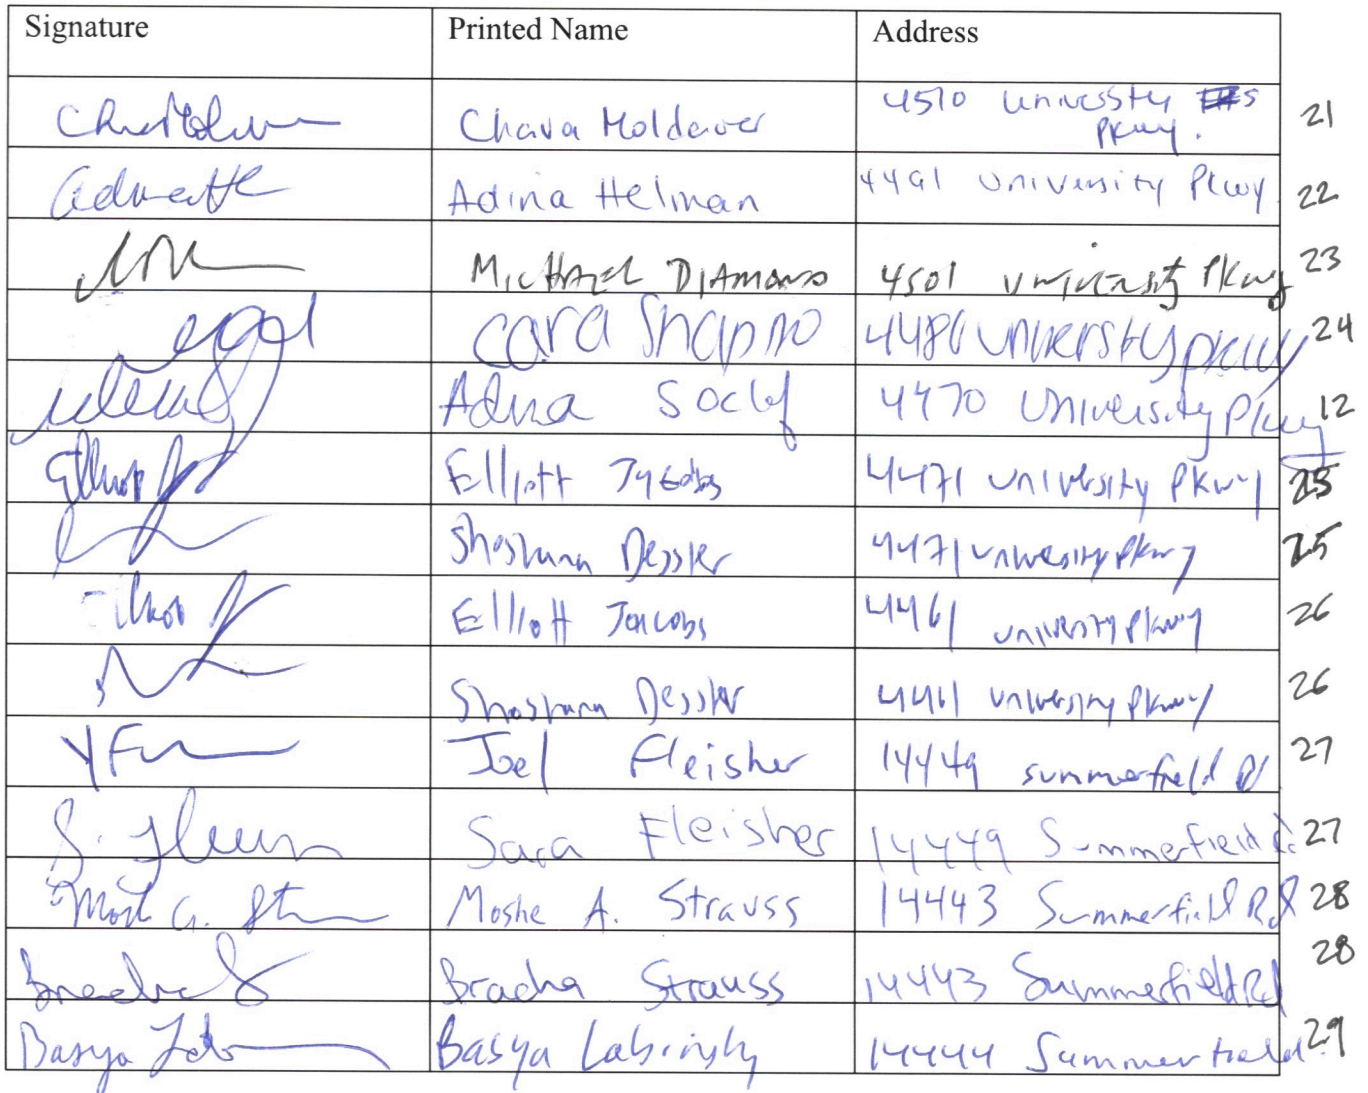 Signature Printed Name Address
Chava Moldaver 4510 University
Pkwy. 21
Adina Helman 4491 University Pkwy 22
Michael Diamond 4501 University Pkwy 23
Cara Shapiro 4480 University Pkwy 24
Adina Soclof 4470 University Pkwy 12
Elliott Jacobs 4471 University Pkwy 25
Shoshana Dessler 4471 University Pkwy 25
Elliott Jacobs 4461 University Pkwy 26
Shoshana Dessler 4461 University Pkwy 26
Joel Fleisher 14449 Summerfield Rd 27
Sara Fleisher 14449 Summerfield Rd 27
Moshe A. Strauss 14443 Summerfield Rd 28
Bracha Strauss 14443 Summerfield Rd 28
Basya Basya 14444 Summerfield 29